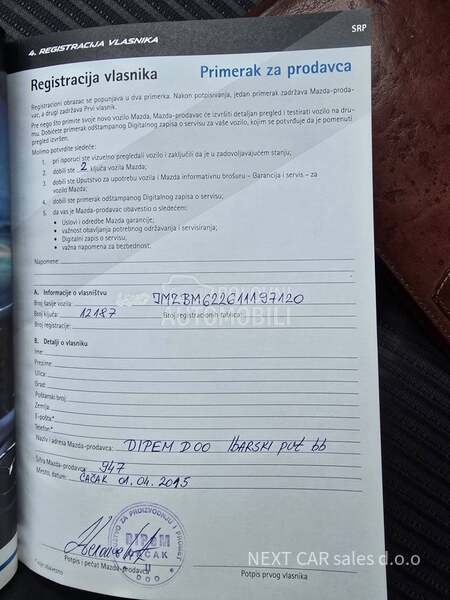 SRP
4. REGISTRACIJA VLASNIKA
Registracija vlasnika Primerak za prodavca
Registracioni obrazac se popunjava u dva primerka. Nakon potpisivanja, jedan primerak zadržava Mazda-prodavac, a drugi zadržava Prvi vlasnik.
Pre nego što primite svoje novo vozilo Mazda, Mazda-prodavac će izvršiti detaljan pregled i testirati vozilo na drumu. Dobićete primerak odštampanog Digitalnog zapisa o servisu za vaše vozilo, kojim se potvrđuje da je pomenuti
pregled izvršen.
Molimo potvrdite sledeće:
1. pri isporuci ste vizuelno pregledali vozilo i zaključili da je u zadovoljavajućem stanju;
2. dobili ste 2 ključa vozila Mazda;
3. dobili ste Uputstvo za upotrebu vozila i Mazda informativnu brošuru – Garancija i servis – za
vozilo Mazda;
4. dobili ste primerak odštampanog Digitalnog zapisa o servisu;
5. da vas je Mazda-prodavac obavestio o sledećem:
• Uslovi i odredbe Mazda garancije;
• važnost obavljanja potrebnog održavanja i servisiranja;
• Digitalni zapis o servisu;
• važna napomena za bezbednost.
Napomene:
A. Informacije o vlasništvu
Broj šasije vozila: JMZBM622611197120
Broj ključa: 12187 Broj registracionih tablica:
Broj registracije:
AUTOMOBILI
B. Detalji o vlasniku
Ime:
Prezime:
Ulica:
Grad:
Poštanski broj:
Zemlja:
E-pošta*:
Telefon*:
Naziv i adresa Mazda-prodavca: DIPEM DOO Ibarski put bb
Šifra Mazda-prodavca: 947
Mesto, datum: ČAČAK 01.04.2015
DIPEM
ČAČAK
DOO
Potpis i pečat Mazda-prodavca Potpis prvog vlasnika
NEXT CAR sales d.o.o